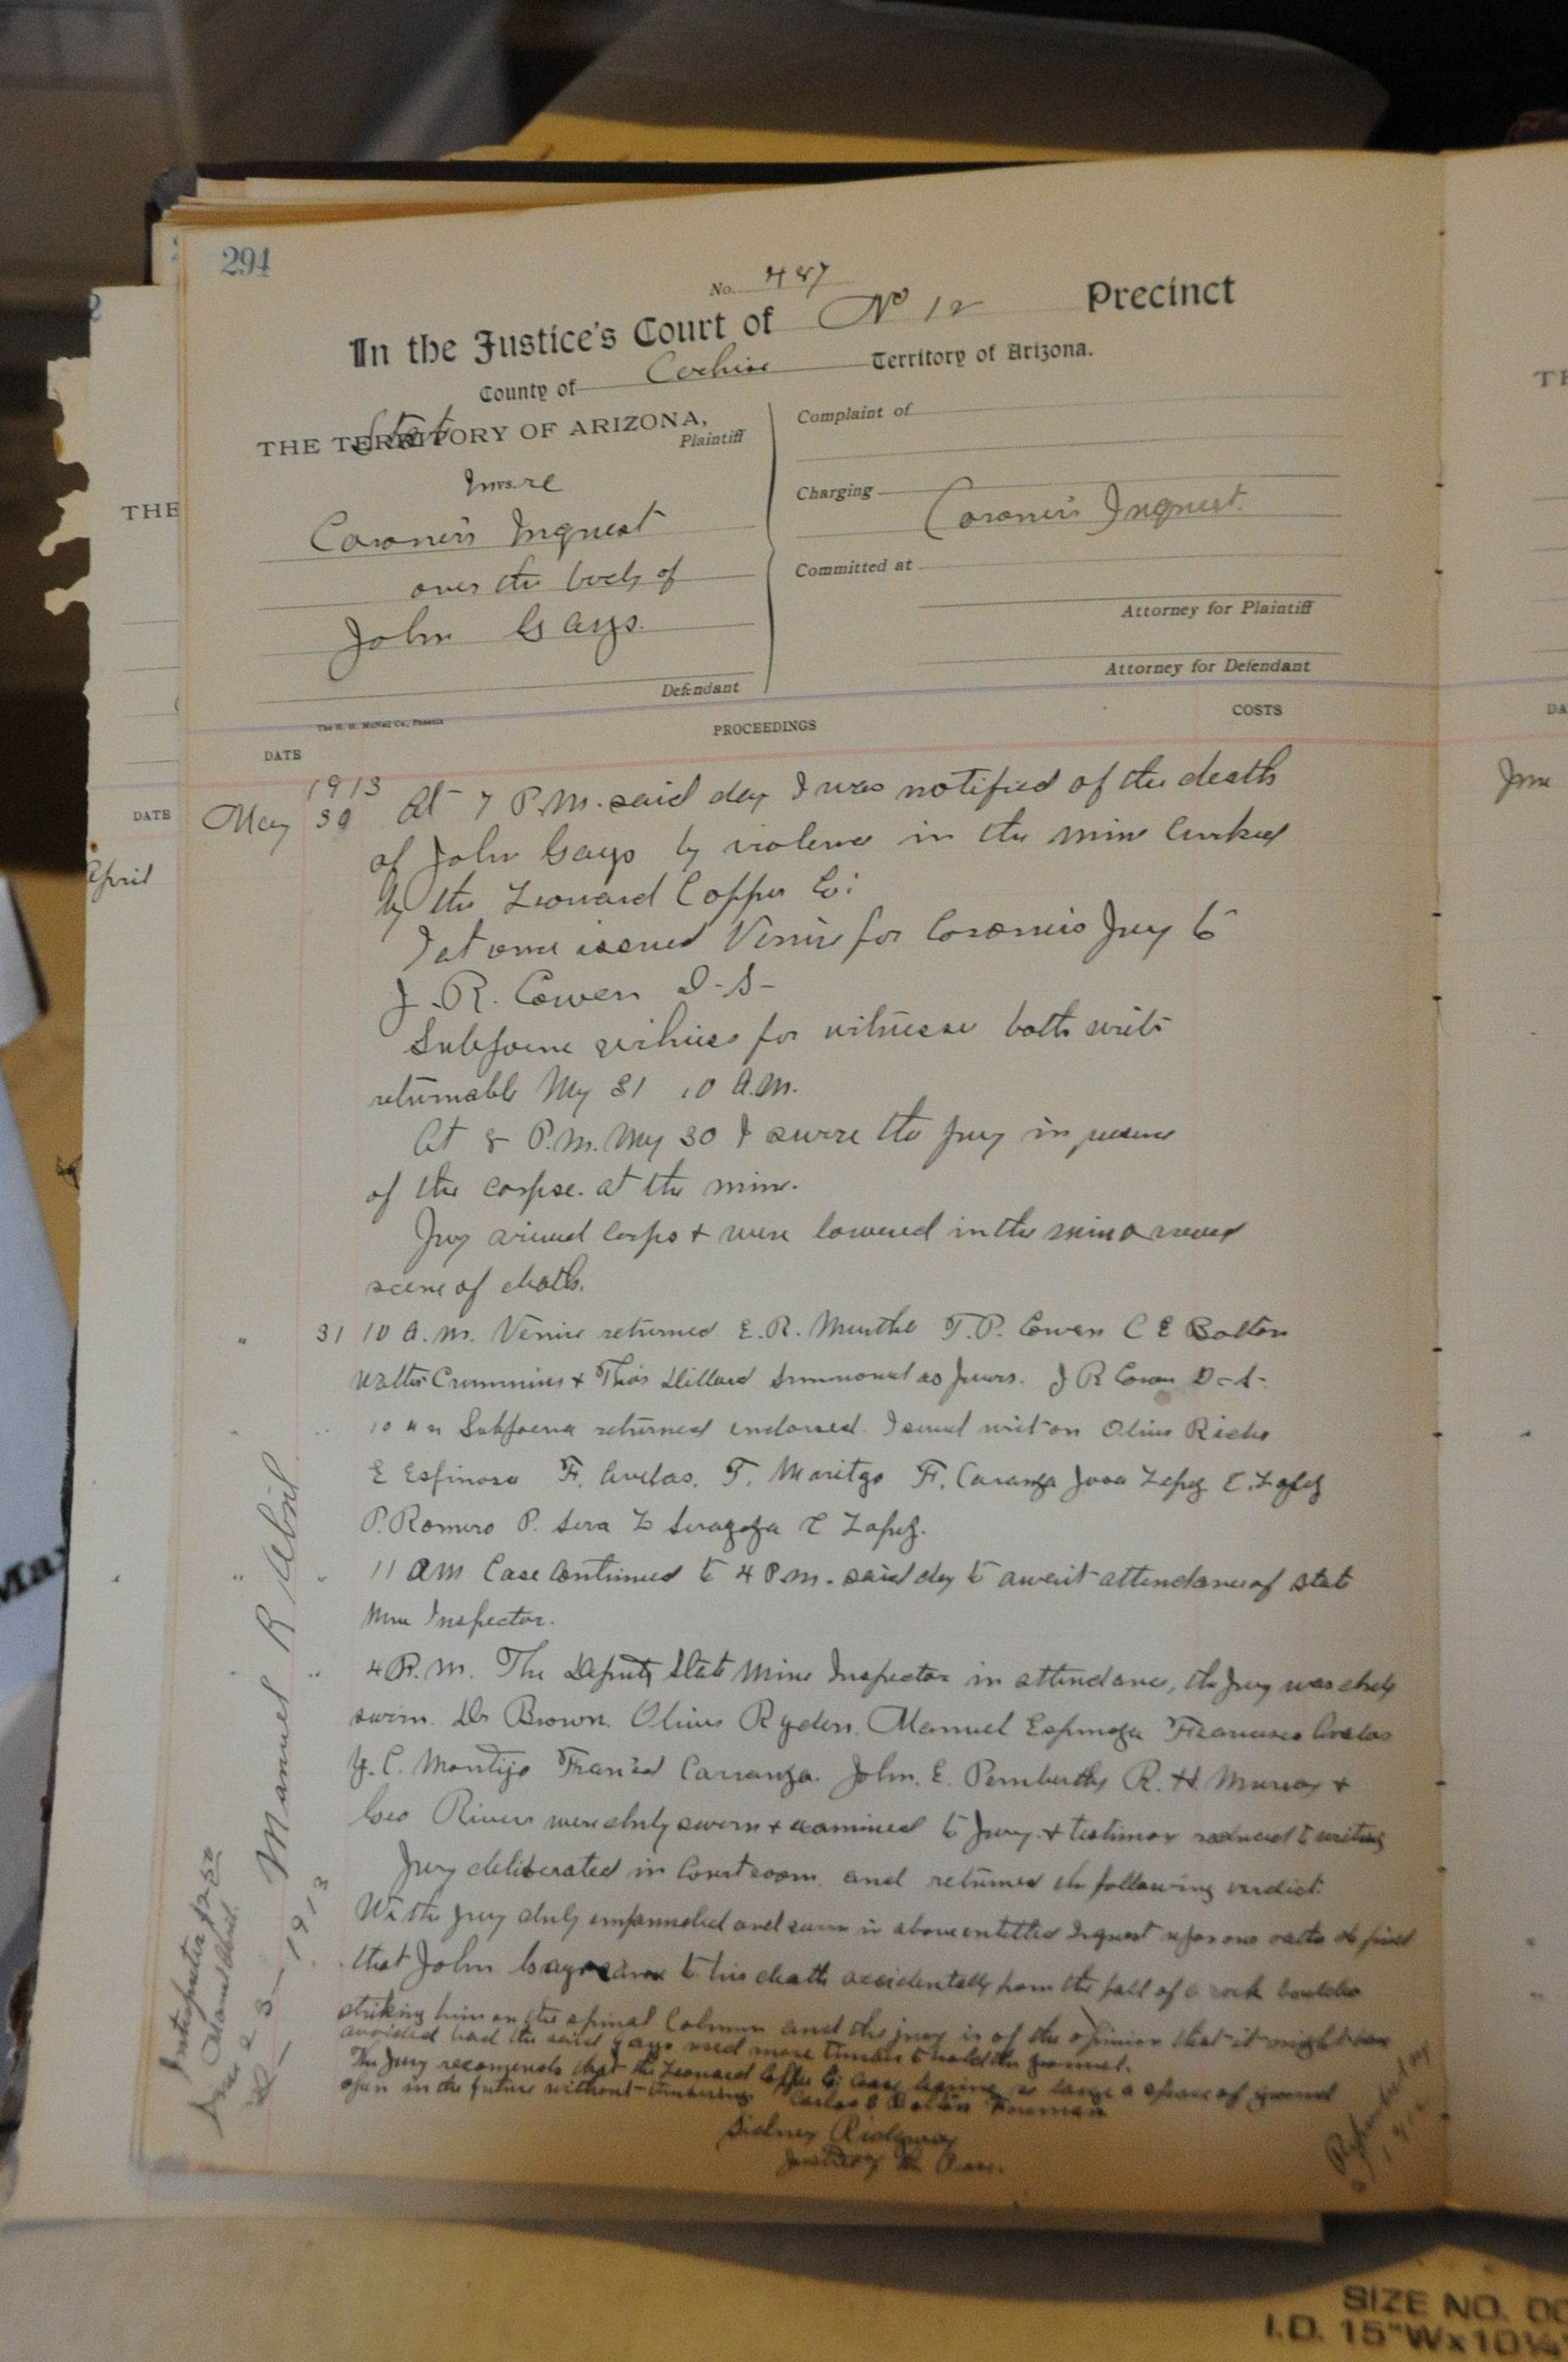 294
No. 487
In the Justice's Court of No 12 Precinct
County of Cochise Territory of Arizona.
State
THE TERRITORY OF ARIZONA,
Plaintiff
Coroner's Inquest
over the body of
John Gayo.
Defendant
Complaint of
Charging
Coroner's Inquest.
Committed at
Attorney for Plaintiff
Attorney for Defendant
The H. H. McNeil Co., Phoenix
DATE PROCEEDINGS COSTS
1913
May 30 At 7 P.M. said day I was notified of the death
of John Gayo by violence in the mine worked
by the Leonard Copper Co:
I at once issued Venire for Coroners Jury to
J. R. Cowen D-S-
Subpoena for witnesses both writs
returnable May 31 10 A.M.
At 8 P.M. May 30 I swore the jury in presence
of the corpse. at the mine.
Jury viewed corps + were lowered in the mine viewed
scene of death.
" 31 10 A.M. Venire returned E.R. T.P. Cowen C E Bolton
Walter Cummins + Thos Dillard Summoned as Jurors. J R Cowen D-S-
10 a m Subpoena returned endorsed. I served writ on Olius
E Espinosa F. Avelas. T. F. Caranza Lopez E. Lopez
P. Romero P. Sera Lopez.
" " 11 AM Case Continued to 4 P.M. said day to await attendance of State
Mine Inspector.
" " 4 P.M. The Deputy State Mine Inspector in attendance, the jury was duly
sworn. Dr Brown. Olius Ryden. Manuel Espinoza Francisco Avelas
Y. C. Montijo Carranza. John. E. Pemberthy R. H. Murray +
Geo Rivers were duly sworn + examined to Jury + testimony reduced to writing
Jury deliberated in Court room and returned the following verdict.
We the jury duly empannelled and sworn in above entitled Inquest upon our oaths do find
that John Gayo came to his death accidentally from the fall of a rock boulder
striking him on the spinal Column and the jury is of the opinion that it might
avoided had the said Gayo used more timber to hold the ground.
The Jury recomends that the Leonard Copper Co: cease leaving so large a space of ground
open in the future without timbering. Carlos E Bolton Foreman
Sidney Ridgway
Justice of the Peace.
Interpreter $2.50
Manuel Abril.
June 23 - 1913
Manuel R Abril
THE
DATE
April
THE
DATE
June
SIZE NO.
I.D. 15"W x 10¼